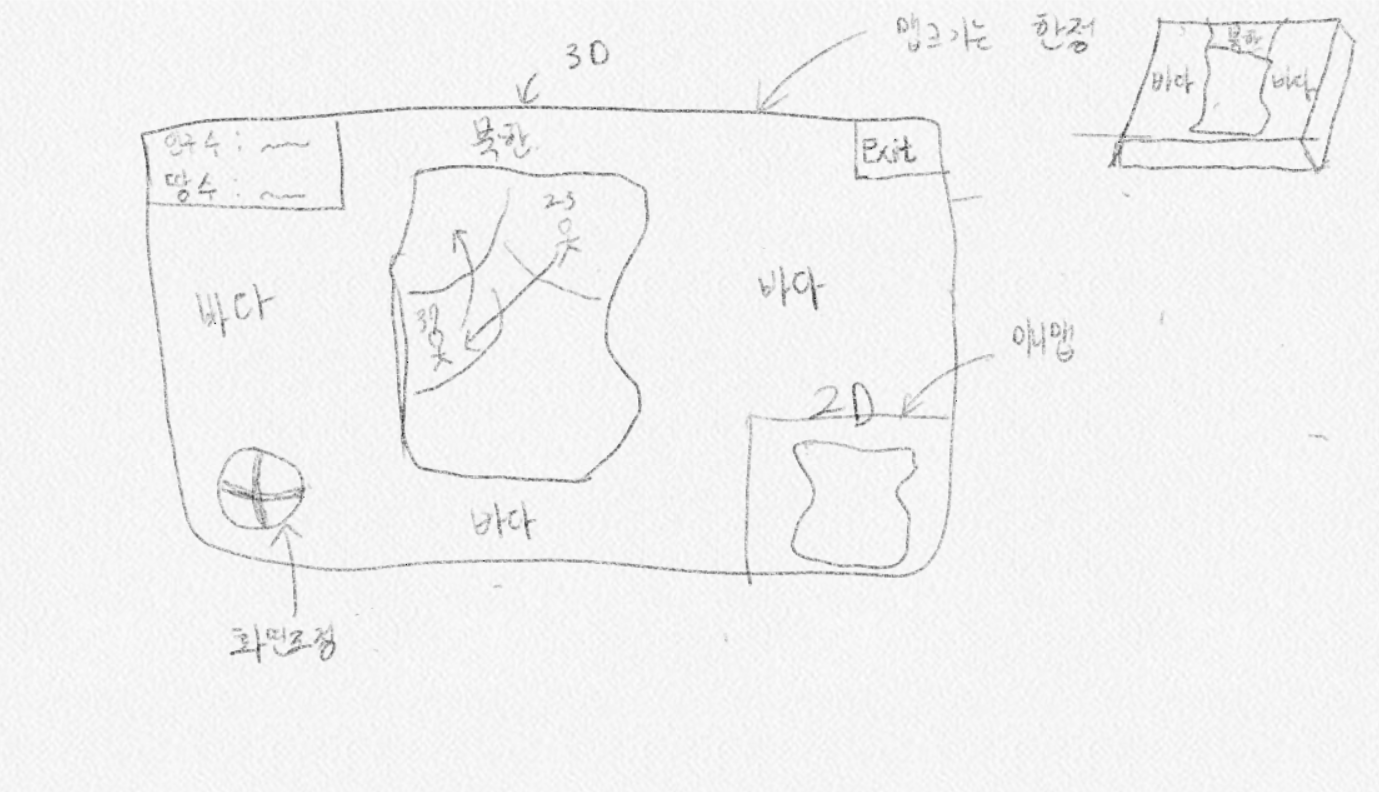 3D
맵크기는 한정
북한
바다
바다
인구수 : ~~
땅수 : ~~
북한
Exit
25
39
바다
바다
미니맵
2D
바다
화면조정